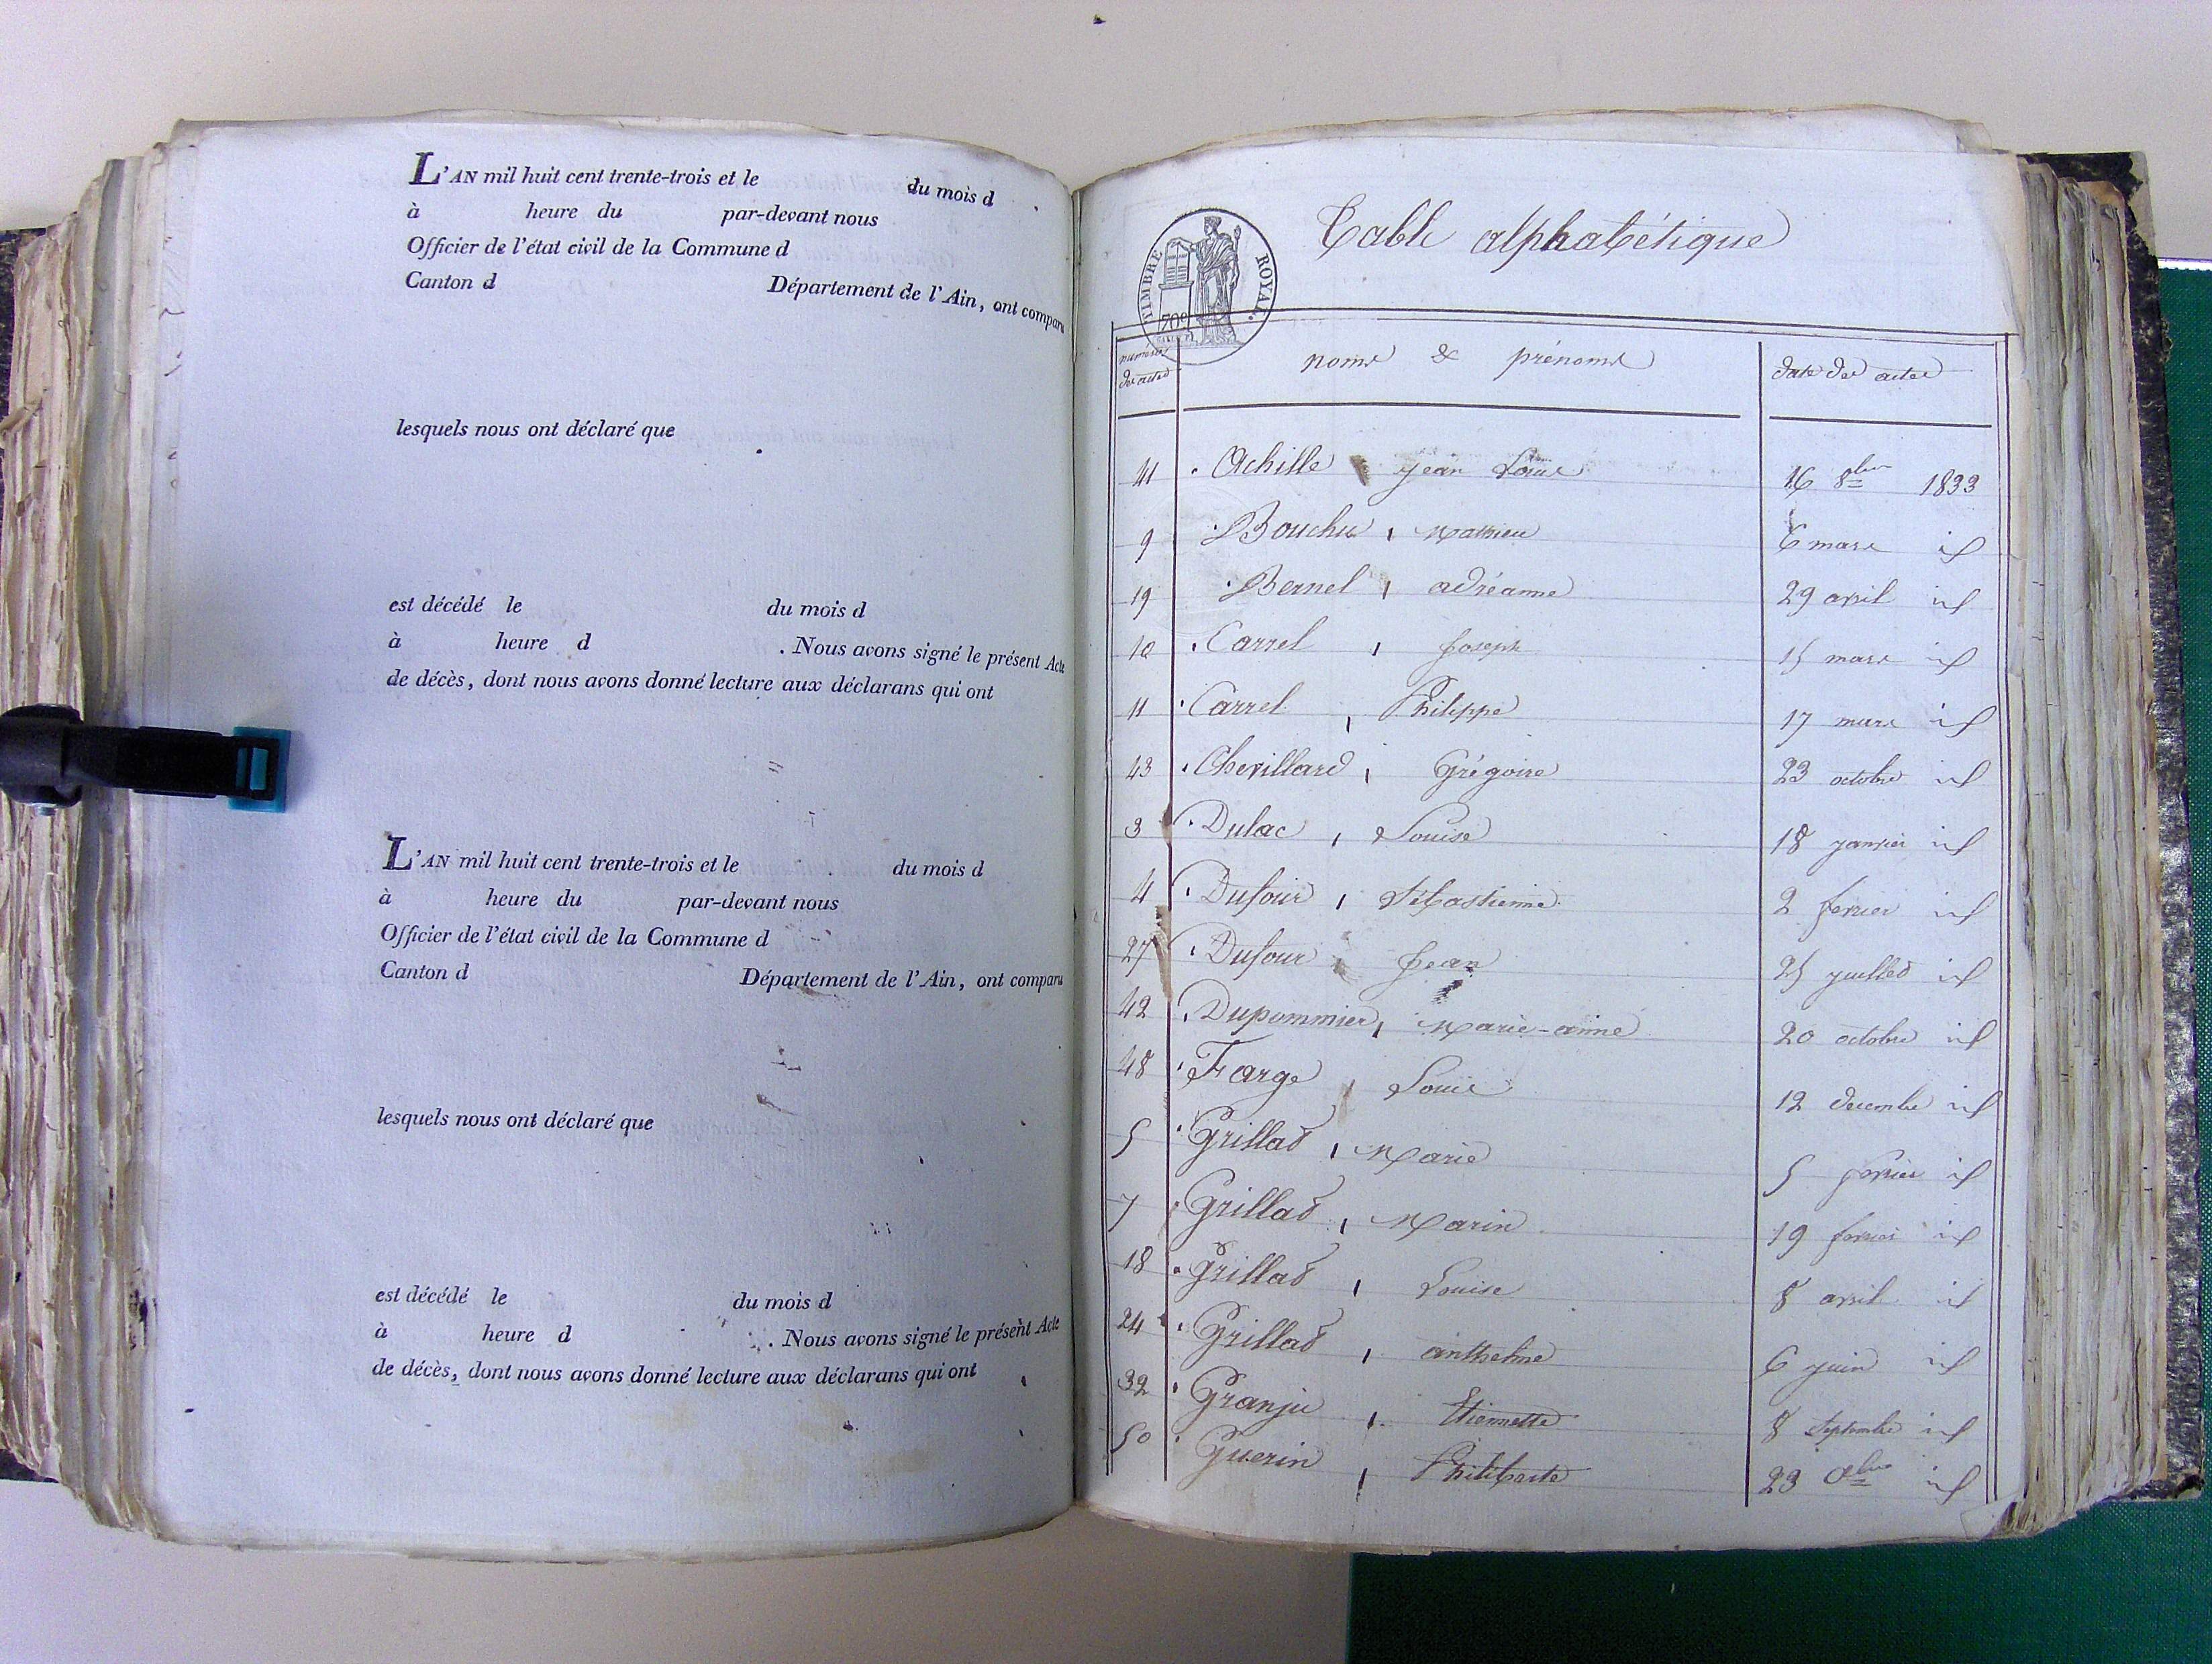 L'AN mil huit cent trente-trois et le du mois d
à heure du par-devant nous
Officier de l'état civil de la Commune d
Canton d Département de l'Ain, ont comparu
lesquels nous ont déclaré que
est décédé le du mois d
à heure d . Nous avons signé le présent Acte
de décès, dont nous avons donné lecture aux déclarans qui ont
L'AN mil huit cent trente-trois et le du mois d
à heure du par-devant nous
Officier de l'état civil de la Commune d
Canton d Département de l'Ain, ont comparu
lesquels nous ont déclaré que
est décédé le du mois d
à heure d . Nous avons signé le présent Acte
de décès, dont nous avons donné lecture aux déclarans qui ont
Table alphabétique
TIMBRE ROYAL.
70c
numéros des actes noms & prénoms date des actes
41 Achille jean Louis 16 8bre 1833
9 Bouchu, Mathieu 6 mars id
19 Bernel, adréanne 29 avril id
10 Carrel, Joseph 15 mars id
11 Carrel, Philippe 17 mars id
43 Chevillard, Grégoire 23 octobre id
3 Dulac, Louise 18 janvier id
4 Dufour, Sébastienne 2 fevrier id
27 Dufour Jean 25 juillet id
42 Dupommier, Marie-anne 20 octobre id
48 Farge, Louis 12 decembre id
5 Grillad, Marie 5 fevrier id
7 Grillad, Marin 19 fevrier id
18 Grillad, Louise 8 avril id
24 Grillad, anthelme 6 juin id
32 Granju, Etiennette 8 Septembre id
50 Guerin, Philiberte 23 id